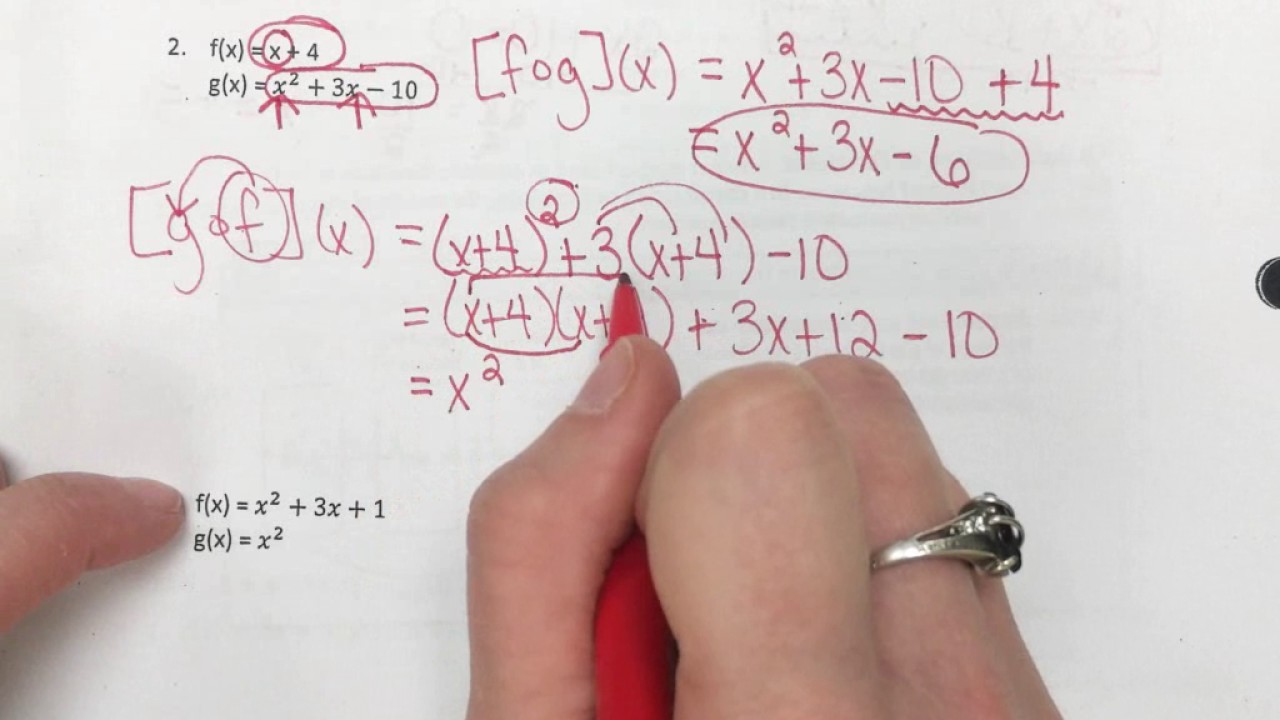 2. f(x) = x + 4
g(x) = x² + 3x − 10
[fog](x) = x² + 3x − 10 + 4
= x² + 3x − 6
[gof](x) = (x+4)² + 3(x+4) − 10
= (x+4)(x+ ) + 3x + 12 − 10
= x²
f(x) = x² + 3x + 1
g(x) = x²